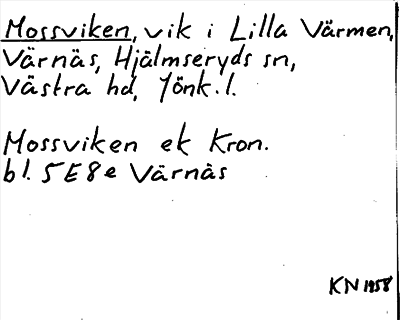 Mossviken, vik i Lilla Värmen,
Värnäs, Hjälmseryds sn,
Västra hd, Jönk.l.
Mossviken ek Kron.
bl. 5E8e Värnäs
KN 1958